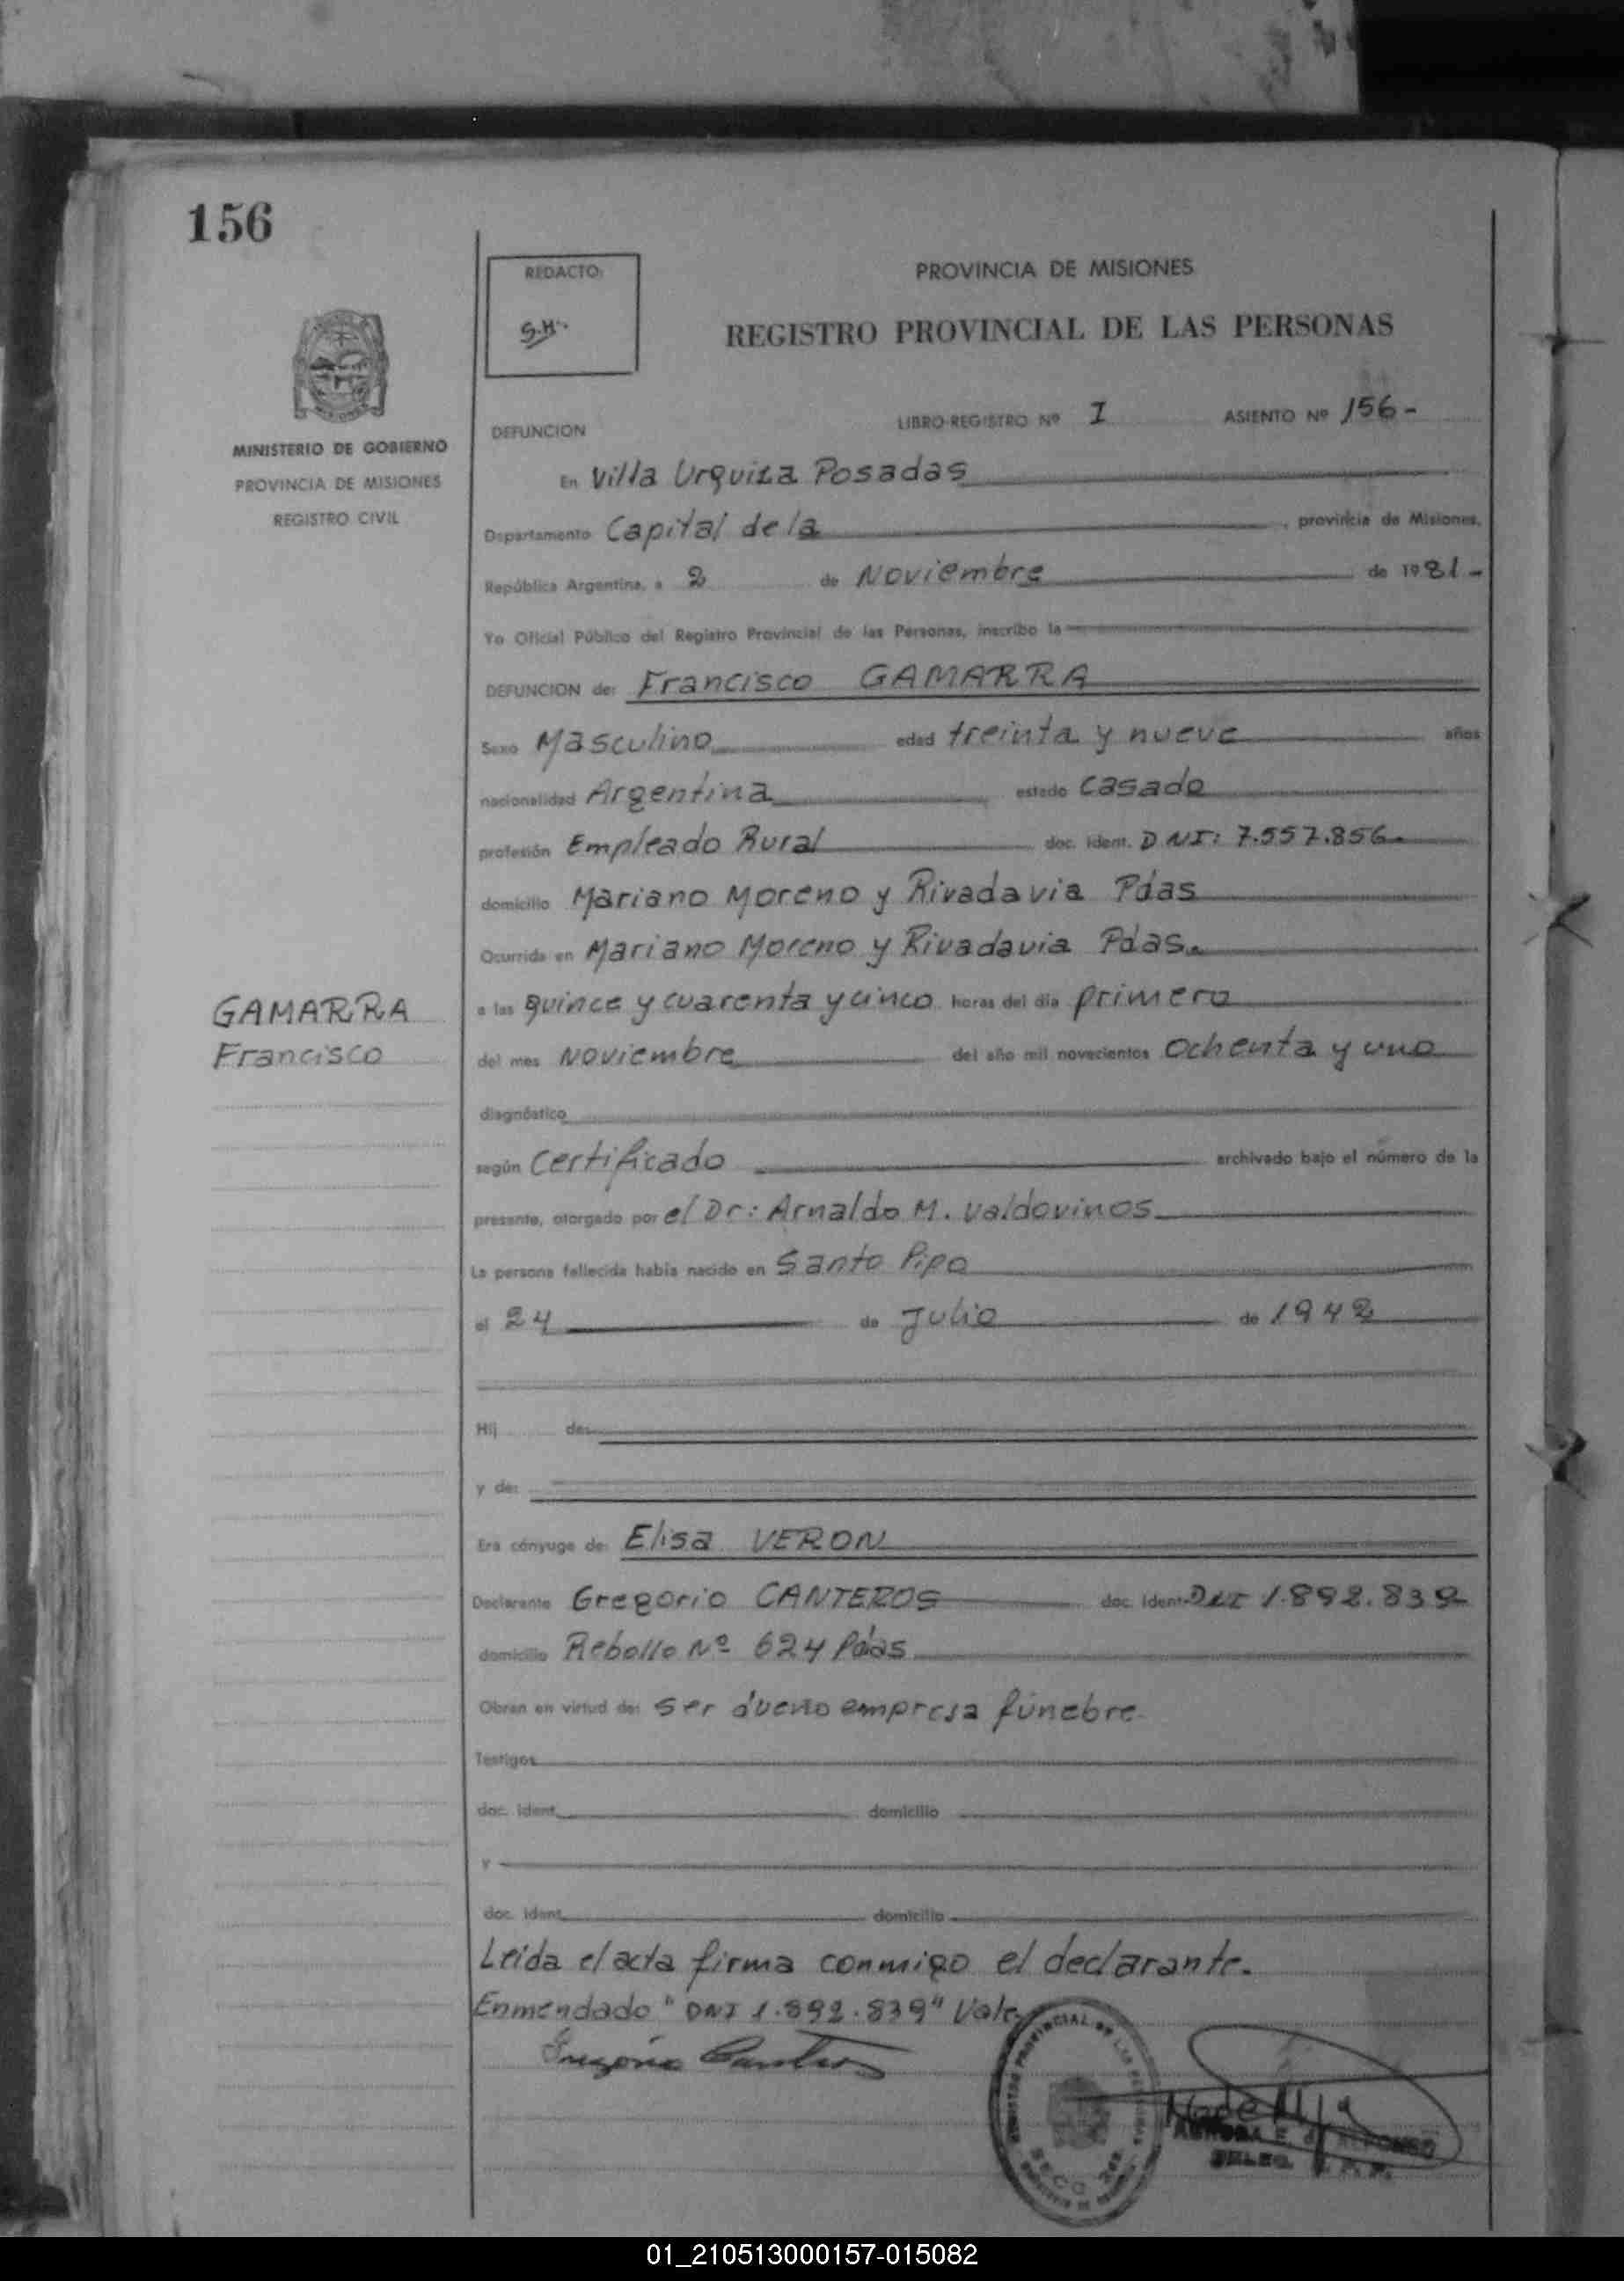 156
REDACTO:
S.H.
PROVINCIA DE MISIONES
REGISTRO PROVINCIAL DE LAS PERSONAS
MISIONES
MINISTERIO DE GOBIERNO
PROVINCIA DE MISIONES
REGISTRO CIVIL
DEFUNCION LIBRO-REGISTRO Nº I ASIENTO Nº 156-
En Villa Urquiza Posadas
Departamento Capital de la , provincia de Misiones,
República Argentina, a 2 de Noviembre de 1981-
Yo Oficial Público del Registro Provincial de las Personas, inscribo la
DEFUNCION de: Francisco GAMARRA
Sexo Masculino edad treinta y nueve años
nacionalidad Argentina estado casado
profesión Empleado Rural doc. ident. DNI: 7.557.856.
domicilio Mariano Moreno y Rivadavia Pdas
Ocurrida en Mariano Moreno y Rivadavia Pdas.
GAMARRA
Francisco
a las quince y cuarenta y cinco horas del día primero
del mes Noviembre del año mil novecientos ochenta y uno
diagnóstico
según certificado archivado bajo el número de la
presente, otorgado por el Dr: Arnaldo M. Valdovinos
La persona fallecida había nacido en Santo Pipo
el 24 de Julio de 1942
Hij de:
y de:
Era cónyuge de: Elisa VERON
Declarante Gregorio CANTEROS doc. ident. DNI 1.892.839
domicilio Rebollo Nº 624 Pdas
Obran en virtud de: ser dueño empresa fúnebre.
Testigos
doc. ident. domicilio
y
doc. ident. domicilio
Leida el acta firma conmigo el declarante.
Enmendado "DNI 1.892.839" Vale
Gregorio Canteros
01_210513000157-015082